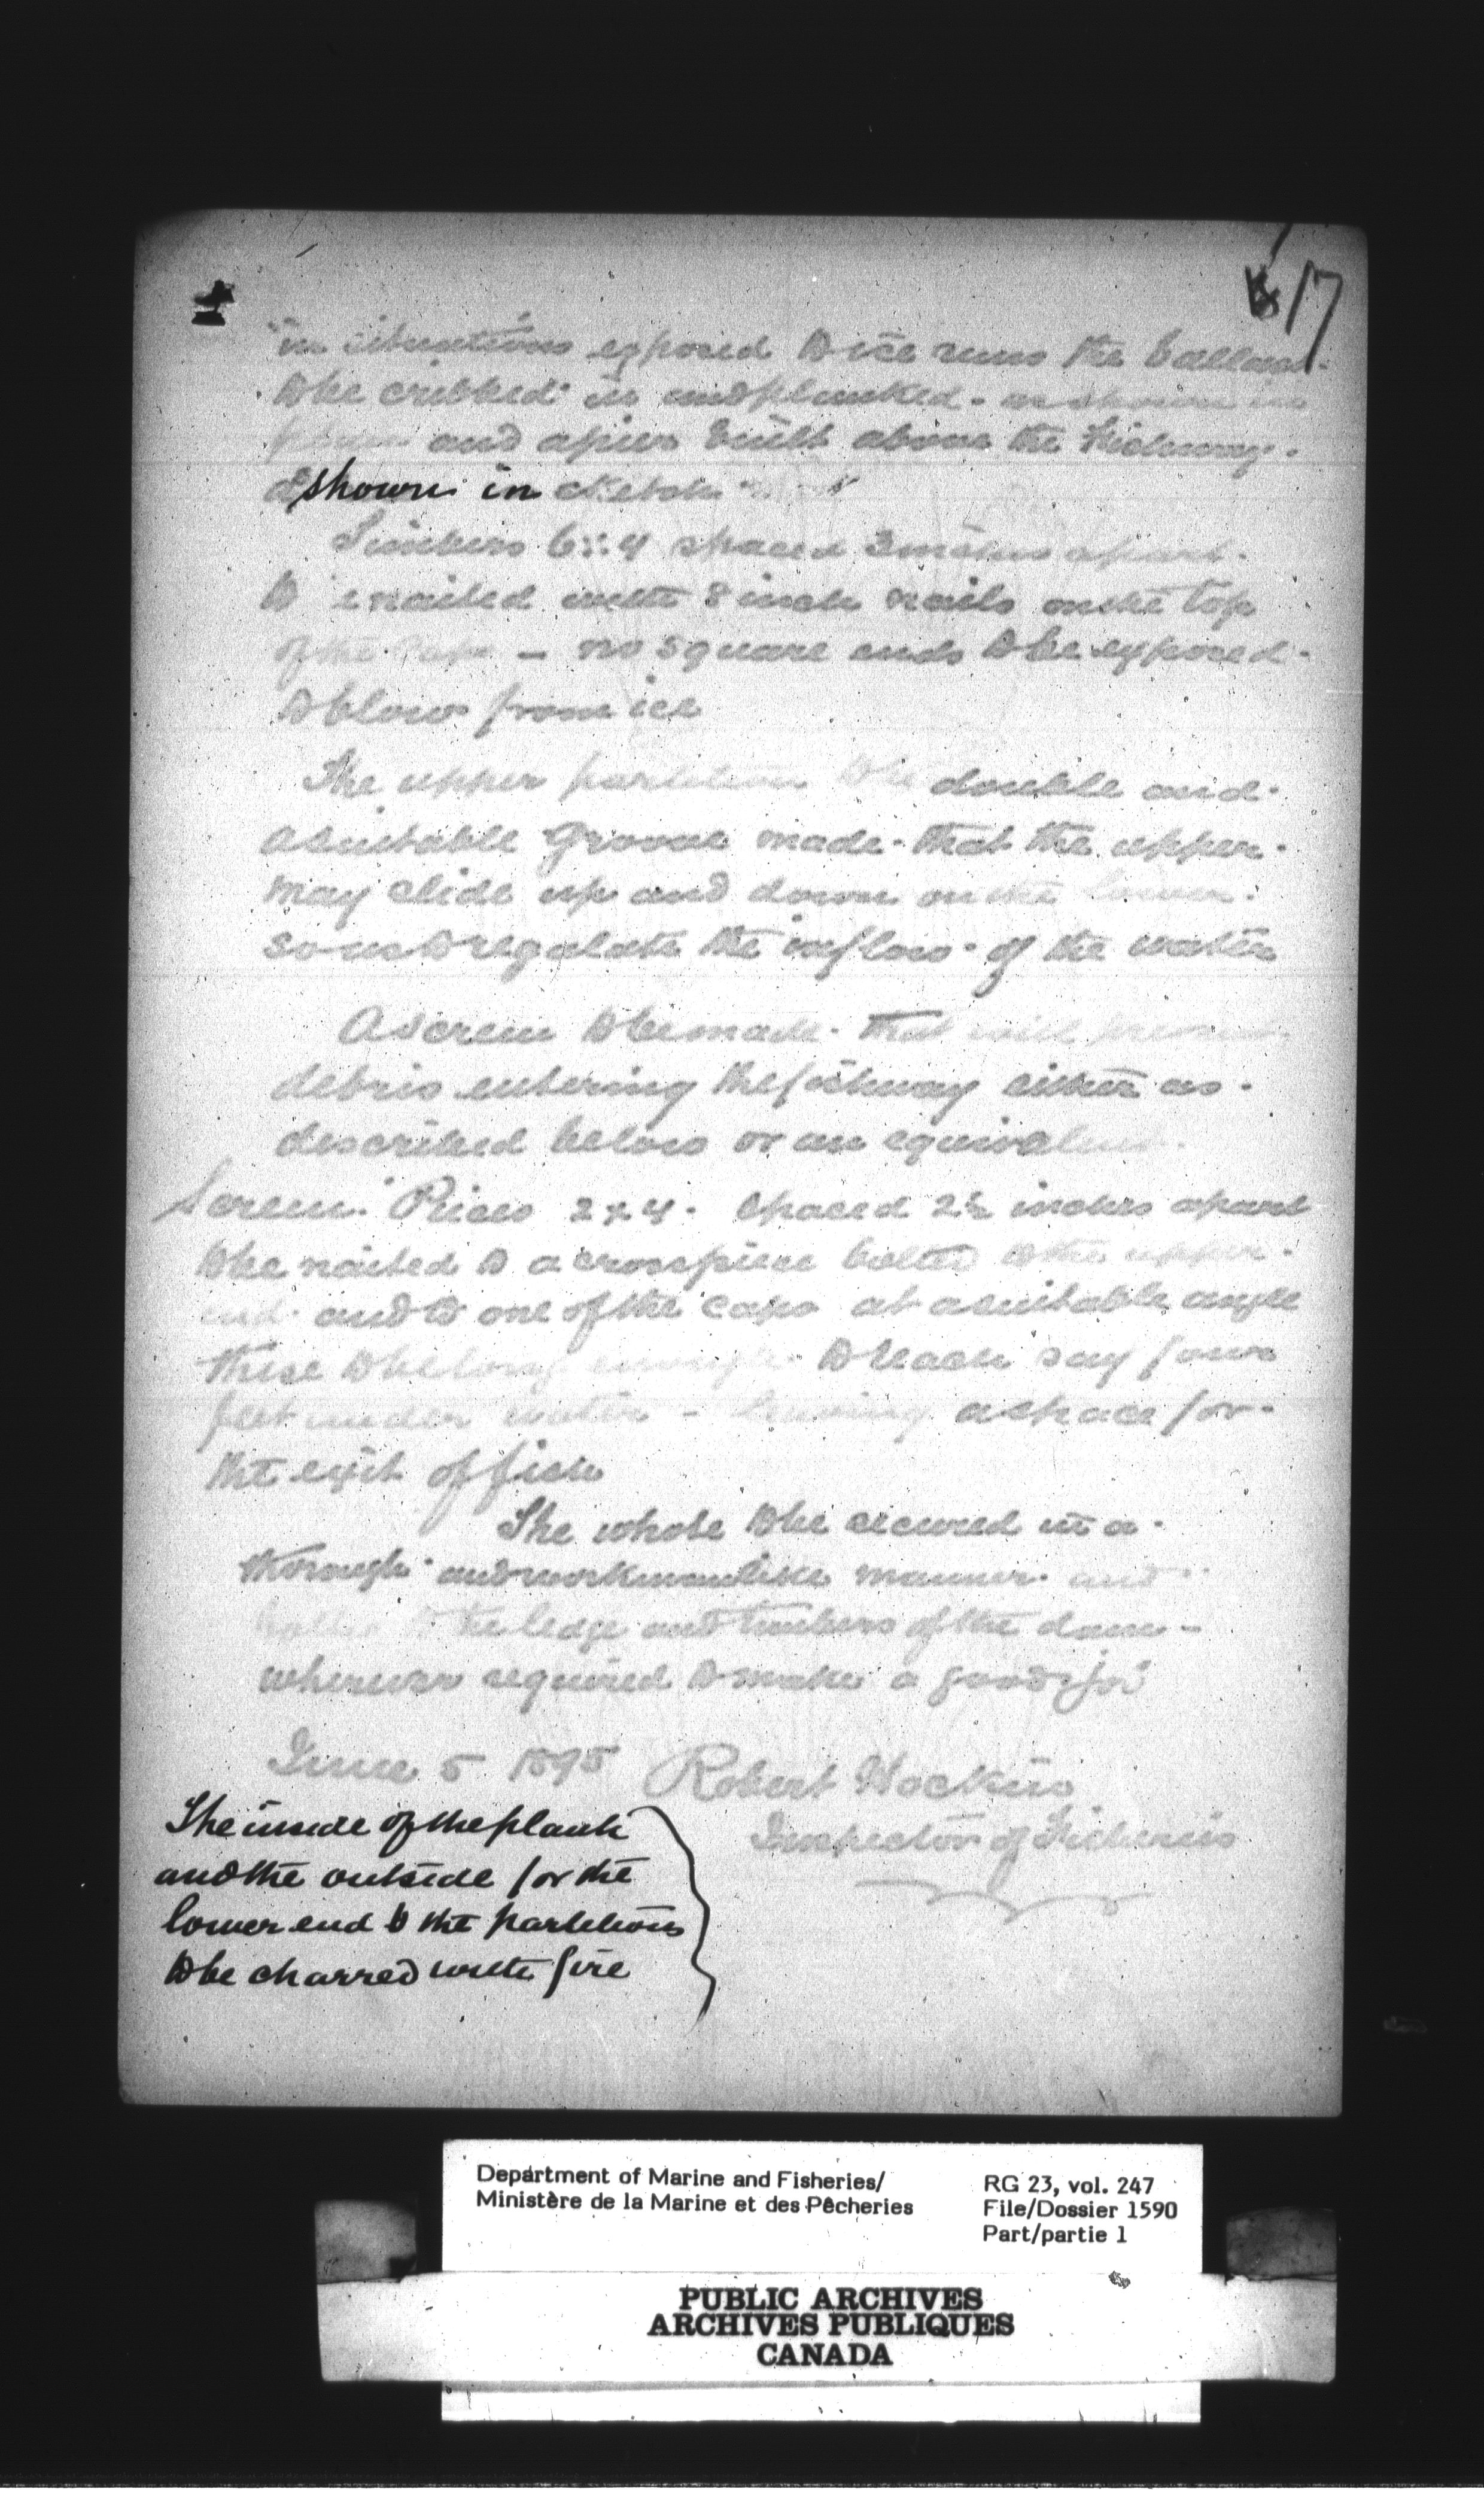 17
in situations exposed to ice runs the ballast
to be cribbed in and planked - as shown in
and a pier built above the Fishway
shown in sketch
Timbers 6 x 4 spaced 3 inches apart
to nailed with 8 inch nails on the top
of the - no square ends to be exposed
to blows from ice
The upper partition to be double and
a suitable groove made that the upper
may slide up and down on the lower
so as to regulate the inflow of the water
A screen to be made that will
debris entering the fishway either as
described below or an equivalent
Screen. Pieces 2 x 4. spaced 2½ inches apart
to be nailed to a crosspiece bolted to the upper
end and to one of the caps at a suitable angle
these to be long enough to reach say four
feet under water - leaving a space for
the exit of fish
The whole to be secured in a
thorough and workmanlike manner and
the ledge and timbers of the dam -
wherever required to make a good job
June 5 1895 Robert Hockin
Inspector of Fisheries
The inside of the plank
and the outside for the
lower end & the partitions
to be charred with fire
Department of Marine and Fisheries/
Ministère de la Marine et des Pêcheries
RG 23, vol. 247
File/Dossier 1590
Part/partie 1
PUBLIC ARCHIVES
ARCHIVES PUBLIQUES
CANADA